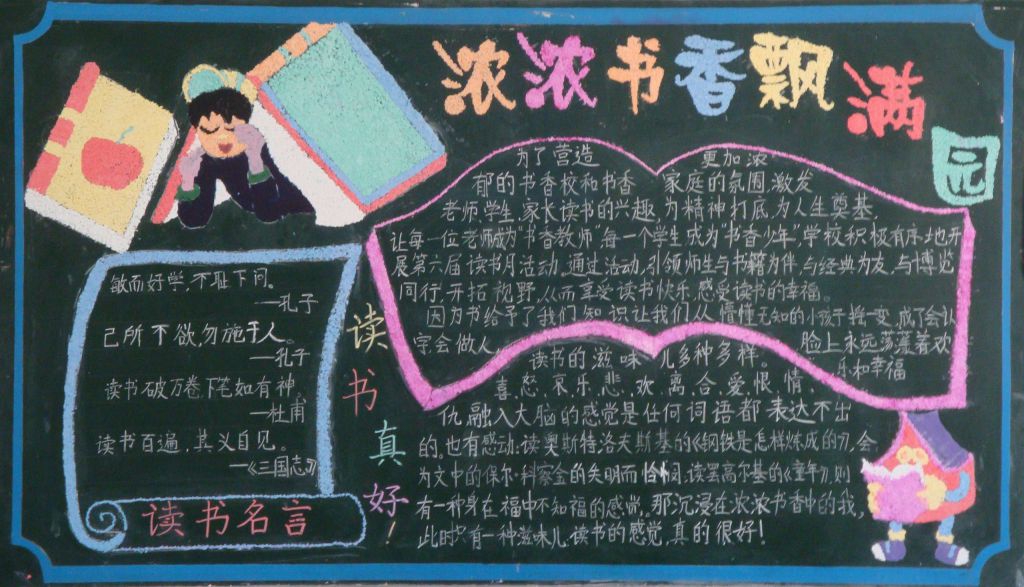 浓浓书香飘满园
敏而好学,不耻下问。
—孔子
己所不欲,勿施于人。
—孔子
读书破万卷下笔如有神。
—杜甫
读书百遍,其义自见。
—《三国志》
读书名言
读书真好!
为了营造 更加浓
郁的书香校和书香 家庭的氛围,激发
老师,学生,家长读书的兴趣,为精神打底,为人生奠基,
让每一位老师成为“书香教师”每一个学生成为“书香少年”,学校积极有序地开
展第六届读书月活动,通过活动,引领师生与书籍为伴,与经典为友,与博览
同行,开拓视野,从而享受读书快乐,感受读书的幸福。
因为书给予了我们知识让我们从懵懂无知的小孩子摇一变,成了会认
字,会做人, 脸上永远荡漾着欢
读书的滋味儿多种多样。
乐和幸福
喜、怒、哀、乐、悲、欢、离、合、爱、恨、情、
仇,融入大脑的感觉是任何词语都表达不出
的。也有感动:读奥斯特洛夫斯基的《钢铁是怎样炼成的》,会
为文中的保尔·柯察金的失明而
读罢高尔基的《童年》,则
有一种身在福中不知福的感觉,那沉浸在浓浓书香中的我,
此时只有一种滋味儿:读书的感觉,真的很好!